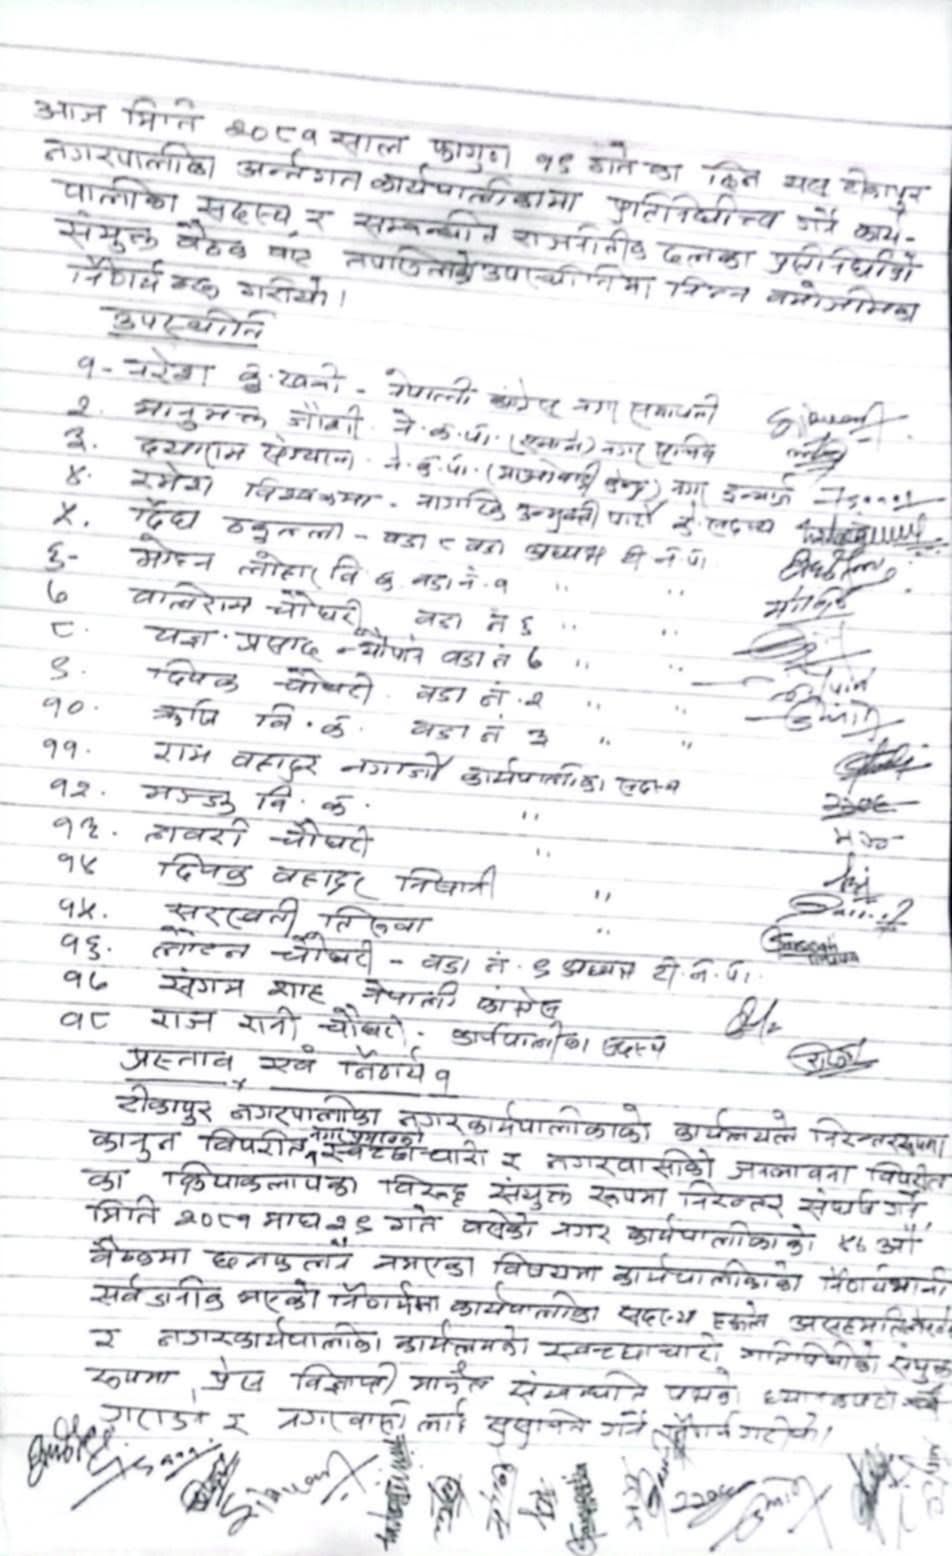 आज मिति २०८१ साल फागुन १९ गतेका दिन यस टीकापुर
नगरपालीका अर्न्तगत कार्यपालीकामा प्रतिनिधीत्व गर्ने कार्य-
पालीका सदस्य र सम्बन्धीत राजनीतीक दलका प्रतीनिधीको
संयुक्त बैठक बसी तपसिलको उपस्थीतिमा निम्न बमोजिमका
निर्णयहरु गरीयो।
उपस्थीति
१- नरेश कु. खत्री - नेपाली कांग्रेस नगर सभापती
२. भानुभक्त जोशी ने.क.पा. (एमाले) नगर सचिव
३. दयाराम ने.क.पा. (माओवादी केन्द्र) नगर इन्चार्ज
४. रमेश विश्वकर्मा - नागरिक उन्मुक्ती पार्टी के. सदस्य
५. ठकुल्ला - वडा ८ वडा अध्यक्ष टी.न.पा.
६- वि.क. वडा नं. १ " "
७ वालीराम चौधरी वडा नं ६ " "
८. यज्ञ प्रसाद चौपाने वडा नं ७ " "
९. दिपक चौधरी वडा नं. २ " "
१०. ऋषि वि.क. वडा नं ३ " "
११. राम बहादुर कार्यपालीका सदस्य
१२. मञ्जु वि.क. "
१३. चौधरी "
१४ दिपक बहादुर "
१५. सरस्वती "
१६. लौटन चौधरी - वडा नं. ९ अध्यक्ष टी.न.पा.
१७ संगम शाह नेपाली कांग्रेस
१८ राज रानी चौधरी - कार्यपालीका सदस्य
प्रस्ताव एवं निर्णय १
टीकापुर नगरपालीका नगरकार्यपालीकाको कार्यलयले निरन्तररुपमा
कानुन विपरीत स्वेच्छाचारी र नगरवासीको जनभावना विपरीत
का क्रियाकलापका विरुद्ध संयुक्त रूपमा निरन्तर संघर्ष गर्ने
मिति २०८१ माघ २९ गते बसेको नगर कार्यपालीकाको ४८ औं
बैठकमा छलफलनै नभएका विषयमा कार्यपालीकाको निर्णयभनी
सार्वजनीक भएको निर्णयमा कार्यपालीका सदस्य हरुले
र नगरकार्यपालीका कार्यलयको स्वेच्छाचारी गतिविधीको संयुक्त
रूपमा प्रेस विज्ञाप्ती मार्फत सम्बन्धीत पक्षको ध्यानाकर्षण
गराउने र नगरवासी लाई सुसूचित गर्ने निर्णय गरीयो।